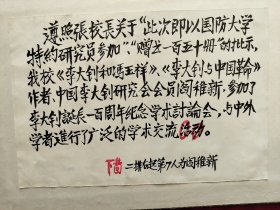 遵照张校長关于“此次即以国防大学
特約研究员参加”,“赠送一百五十册”的批示,
我校《李大钊和瑪玉祥》、《李大钊与中国革命》
作者、中国李大钊研究会会员阎稚新,参加了
李大钊誕辰一百周年纪念学术討論会,与中外
学者進行了广泛的学术交流活动。
下图 二排右起第7人为阎稚新